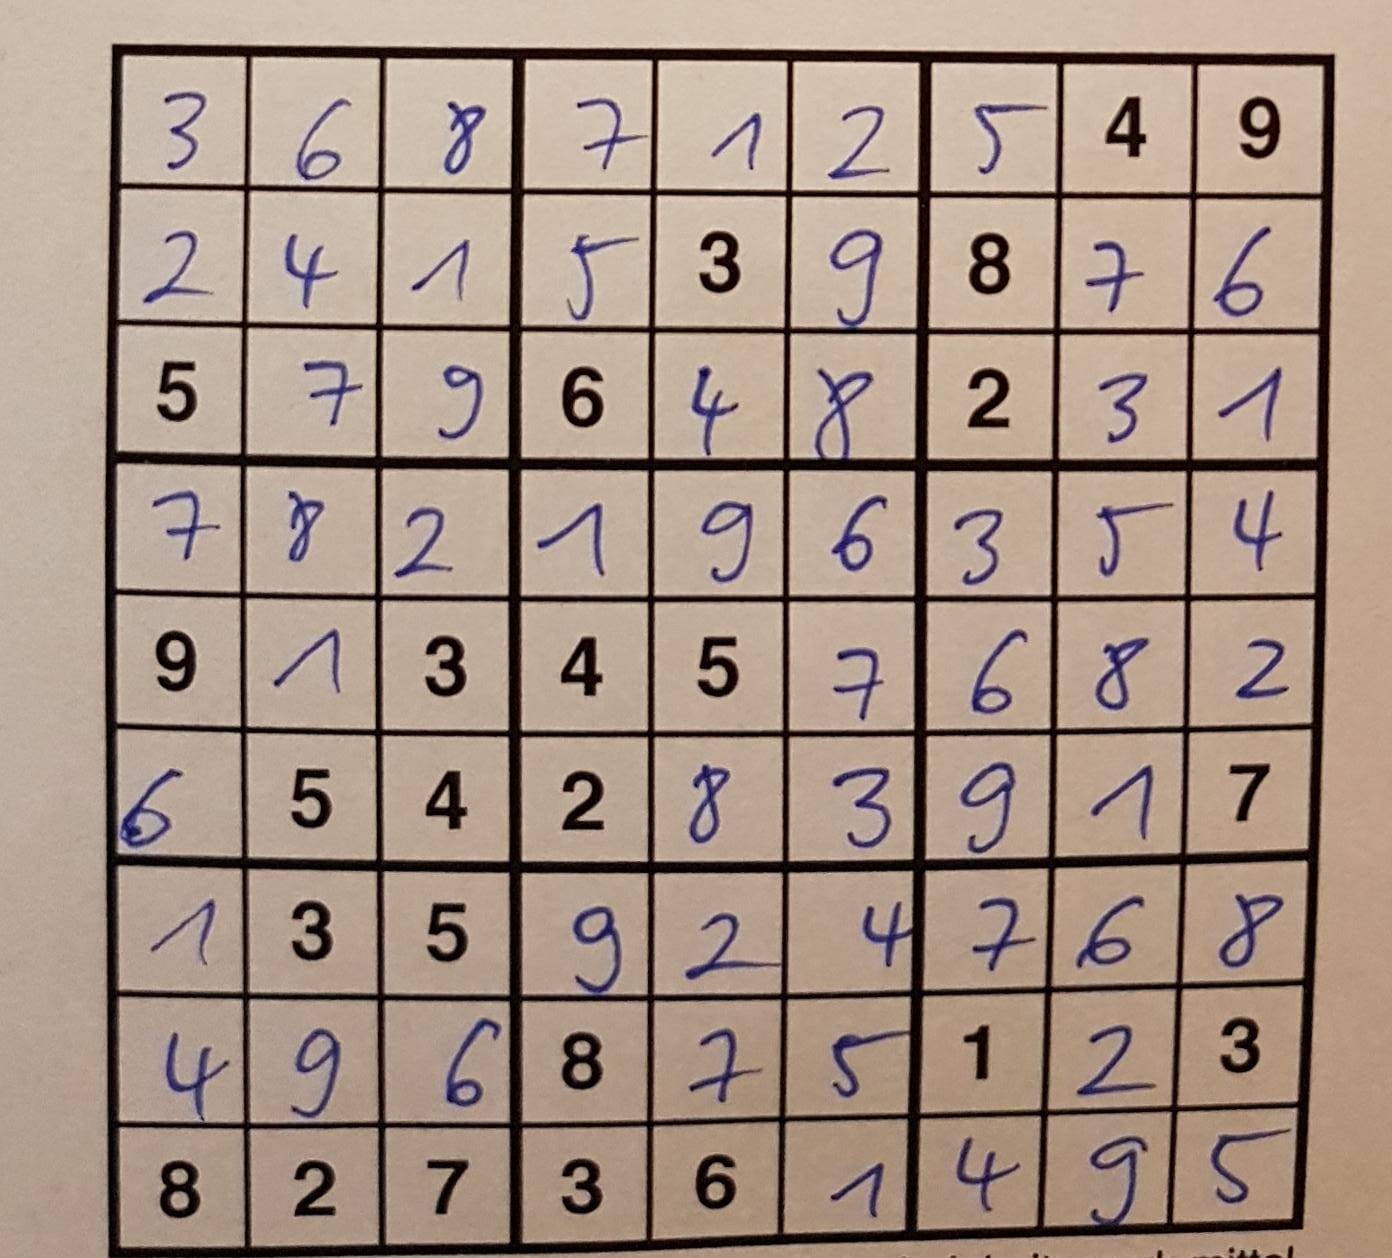 3 6 8 7 1 2 5 4 9
2 4 1 5 3 9 8 7 6
5 7 9 6 4 8 2 3 1
7 8 2 1 9 6 3 5 4
9 1 3 4 5 7 6 8 2
6 5 4 2 8 3 9 1 7
1 3 5 9 2 4 7 6 8
4 9 6 8 7 5 1 2 3
8 2 7 3 6 1 4 9 5